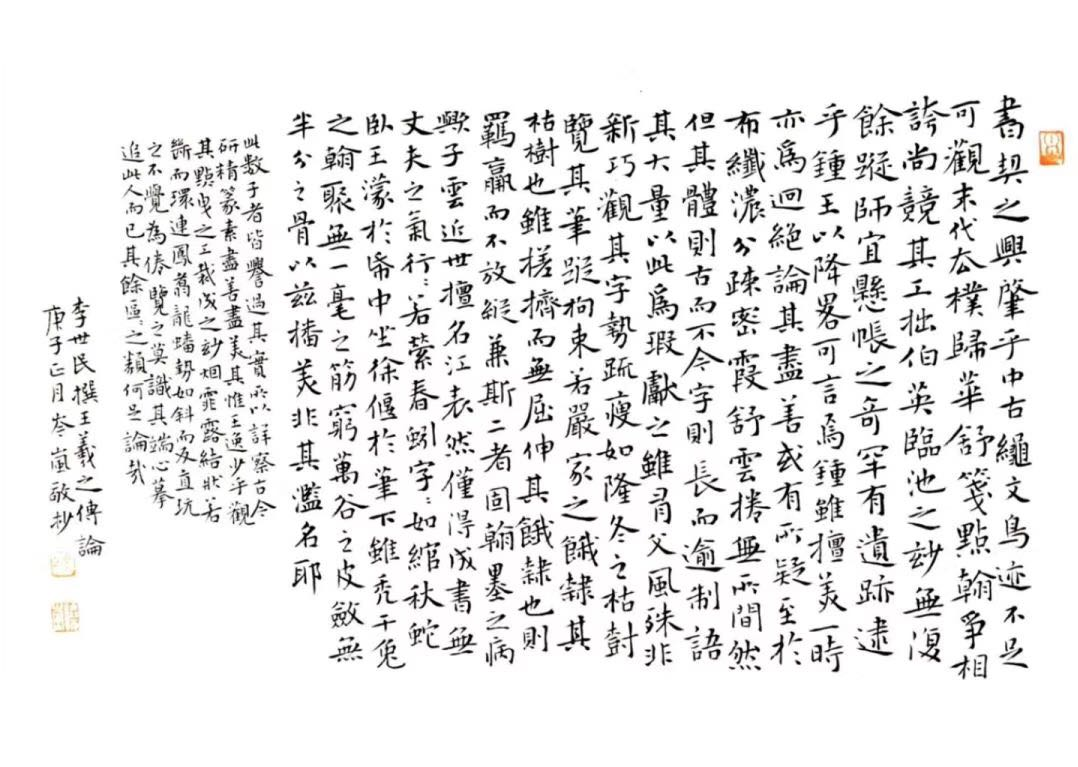 書契之興肇乎中古繩文鳥迹不足
可觀末代去樸歸華舒箋點翰爭相
誇尚競其工拙伯英臨池之妙無復
餘蹤師宜懸帳之奇罕有遺跡逮
乎鍾王以降畧可言焉鍾雖擅美一時
亦爲迥絕論其盡善或有所疑至於
布纖濃分疎密霞舒雲捲無所間然
但其體則古而不今字則長而逾制語
其大量以此爲瑕獻之雖有父風殊非
新巧觀其字勢疏瘦如隆冬之枯樹
覽其筆蹤拘束若嚴家之餓隸其
枯樹也雖槎擠而無屈伸其餓隸也則
羈羸而不放縱兼斯二者固翰墨之病
歟子雲近世擅名江表然僅得成書無
丈夫之氣行〻若縈春蚓字〻如綰秋蛇
臥王濛於帋中坐徐偃於筆下雖禿千兔
之翰聚無一毫之筋窮萬谷之皮斂無
半分之骨以茲播美非其濫名耶
此数子者皆譽過其實所以詳察古今
研精篆素盡善盡美其惟王逸少乎觀
其點曳之工裁成之妙烟霏露結狀若
斷而環連鳳翥龍蟠勢如斜而反直玩
之不覺為倦覽之莫識其端心摹
追此人而已其餘區〻之類何足論哉
李世民撰王羲之傳論
庚子正月岑嵐敬抄